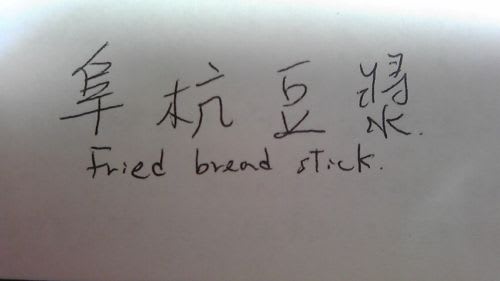 阜杭豆漿.
Fried bread stick.